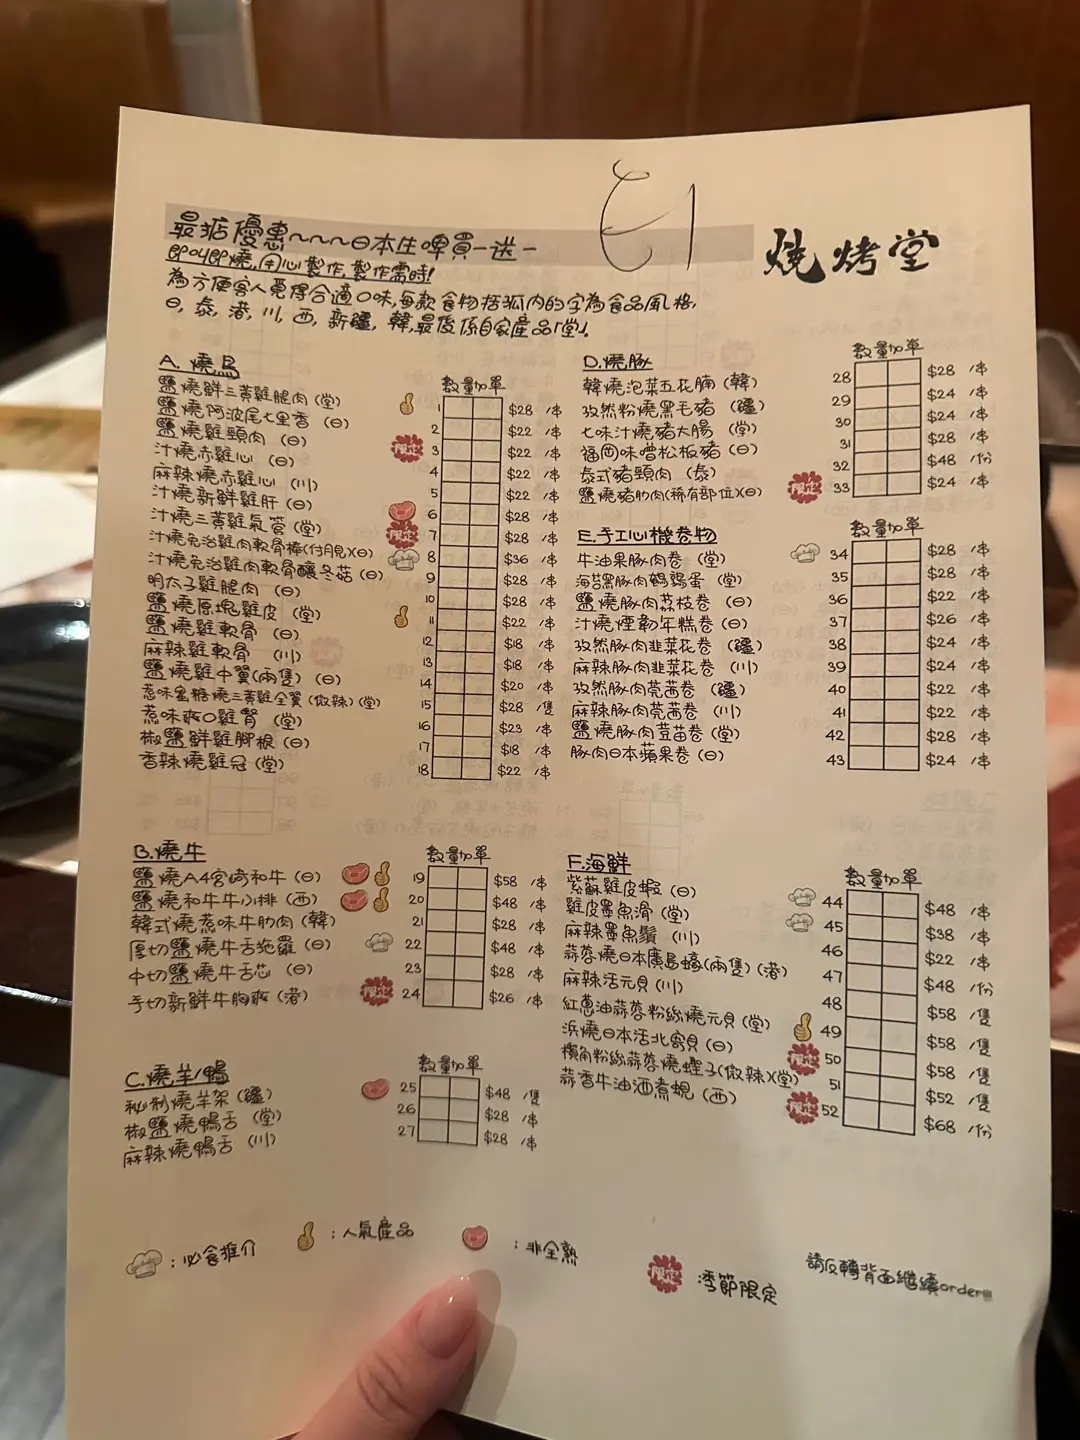 最掂優惠~~~日本生啤買一送一
即叫即燒,用心製作,製作需時!
為方便客人覓得合適口味,每款食物括弧內的字為食品風格,
日, 泰, 港, 川, 西, 新疆, 韓,最後係自家產品「堂」.
燒烤堂
A. 燒鳥 數量加單
鹽燒鮮三黃雞腿肉 (堂) 1 $28 /串
鹽燒阿波尾七里香 (日) 2 $22 /串
鹽燒雞頸肉 (日) 限定 3 $22 /串
汁燒赤雞心 (日) 4 $22 /串
麻辣燒赤雞心 (川) 5 $22 /串
汁燒新鮮雞肝 (日) 6 $28 /串
汁燒三黃雞氣管 (堂) 限定 7 $28 /串
汁燒免治雞肉軟骨棒(付月見)(日) 8 $36 /串
汁燒免治雞肉軟骨釀冬菇 (日) 9 $28 /串
明太子雞腿肉 (日) 10 $28 /串
鹽燒原塊雞皮 (堂) 11 $22 /串
鹽燒雞軟骨 (日) 12 $18 /串
麻辣雞軟骨 (川) 13 $18 /串
鹽燒雞中翼(兩隻) (日) 14 $20 /串
惹味蜜糖燒三黃雞全翼 (微辣) (堂) 15 $28 /隻
惹味爽口雞腎 (堂) 16 $23 /串
椒鹽鮮雞腳根 (日) 17 $18 /串
香辣燒雞冠 (堂) 18 $22 /串
B.燒牛 數量加單
鹽燒A4宮崎和牛 (日) 19 $58 /串
鹽燒和牛牛小排 (西) 20 $48 /串
韓式燒惹味牛肋肉 (韓) 21 $28 /串
厚切鹽燒牛舌拖羅 (日) 22 $48 /串
中切鹽燒牛舌芯 (日) 23 $28 /串
手切新鮮牛胸爽 (港) 限定 24 $26 /串
C.燒羊/鴨 數量加單
秘制燒羊架 (疆) 25 $48 /隻
椒鹽燒鴨舌 (堂) 26 $28 /串
麻辣燒鴨舌 (川) 27 $28 /串
D.燒豚 數量加單
韓燒泡菜五花腩 (韓) 28 $28 /串
孜然粉燒黑毛豬 (疆) 29 $24 /串
七味汁燒豬大腸 (堂) 30 $24 /串
福岡味噌松板豬 (日) 31 $28 /串
泰式豬頸肉 (泰) 32 $48 /份
鹽燒豬肋肉(稀有部位)(日) 限定 33 $24 /串
E.手工心機卷物 數量加單
牛油果豚肉卷 (堂) 34 $28 /串
海苔黑豚肉鵪鶉蛋 (堂) 35 $28 /串
鹽燒豚肉荔枝卷 (日) 36 $22 /串
汁燒煙韌年糕卷 (日) 37 $26 /串
孜然豚肉韭菜花卷 (疆) 38 $24 /串
麻辣豚肉韭菜花卷 (川) 39 $24 /串
孜然豚肉芫茜卷 (疆) 40 $22 /串
麻辣豚肉芫茜卷 (川) 41 $22 /串
鹽燒豚肉荳苗卷 (堂) 42 $28 /串
豚肉日本蘋果卷 (日) 43 $24 /串
F.海鮮 數量加單
紫蘇雞皮蝦 (日) 44 $48 /串
雞皮墨魚滑 (堂) 45 $38 /串
麻辣墨魚鬚 (川) 46 $22 /串
蒜蓉燒日本廣島蠔(兩隻) (港) 47 $48 /份
麻辣活元貝 (川) 48 $58 /隻
紅蔥油蒜蓉粉絲燒元貝 (堂) 49 $58 /隻
浜燒日本活北寄貝 (日) 限定 50 $58 /隻
欖角粉絲蒜蓉燒蟶子(微辣)(堂) 51 $52 /隻
蒜香牛油酒煮蜆 (西) 限定 52 $68 /份
:必食推介
:人氣產品
:非全熟
限定 :季節限定
請反轉背面繼續order!!!